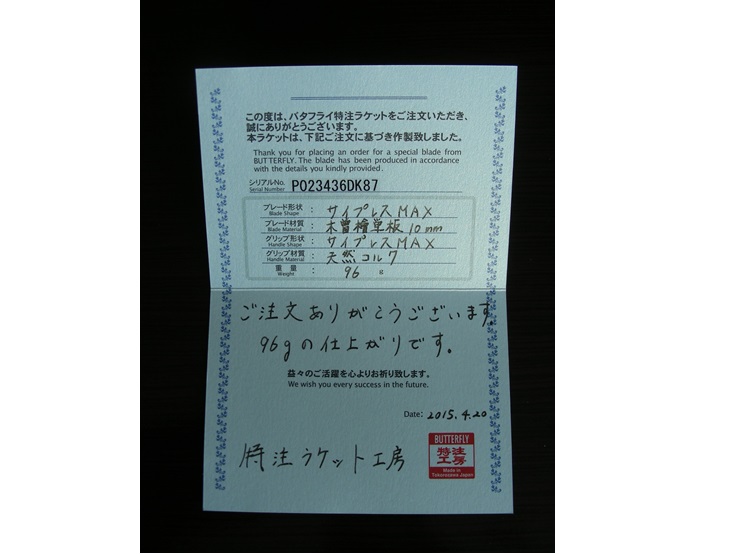 この度は、バタフライ特注ラケットをご注文いただき、
誠にありがとうございます。
本ラケットは、下記ご注文に基づき作製致しました。
Thank you for placing an order for a special blade from
BUTTERFLY. The blade has been produced in accordance
with the details you kindly provided.
シリアルNo. P023436DK87
Serial Number
ブレード形状 : サイプレスMAX
Blade Shape
ブレード材質 : 木曽檜単板 10mm
Blade Material
グリップ形状 : サイプレスMAX
Handle Shape
グリップ材質 : 天然コルク
Handle Material
重量 : 96 g
Weight
ご注文ありがとうございます。
96gの仕上がりです。
益々のご活躍を心よりお祈り致します。
We wish you every success in the future.
Date: 2015.4.20
特注ラケット工房
BUTTERFLY
特注
工房
Made in
Tokorozawa Japan